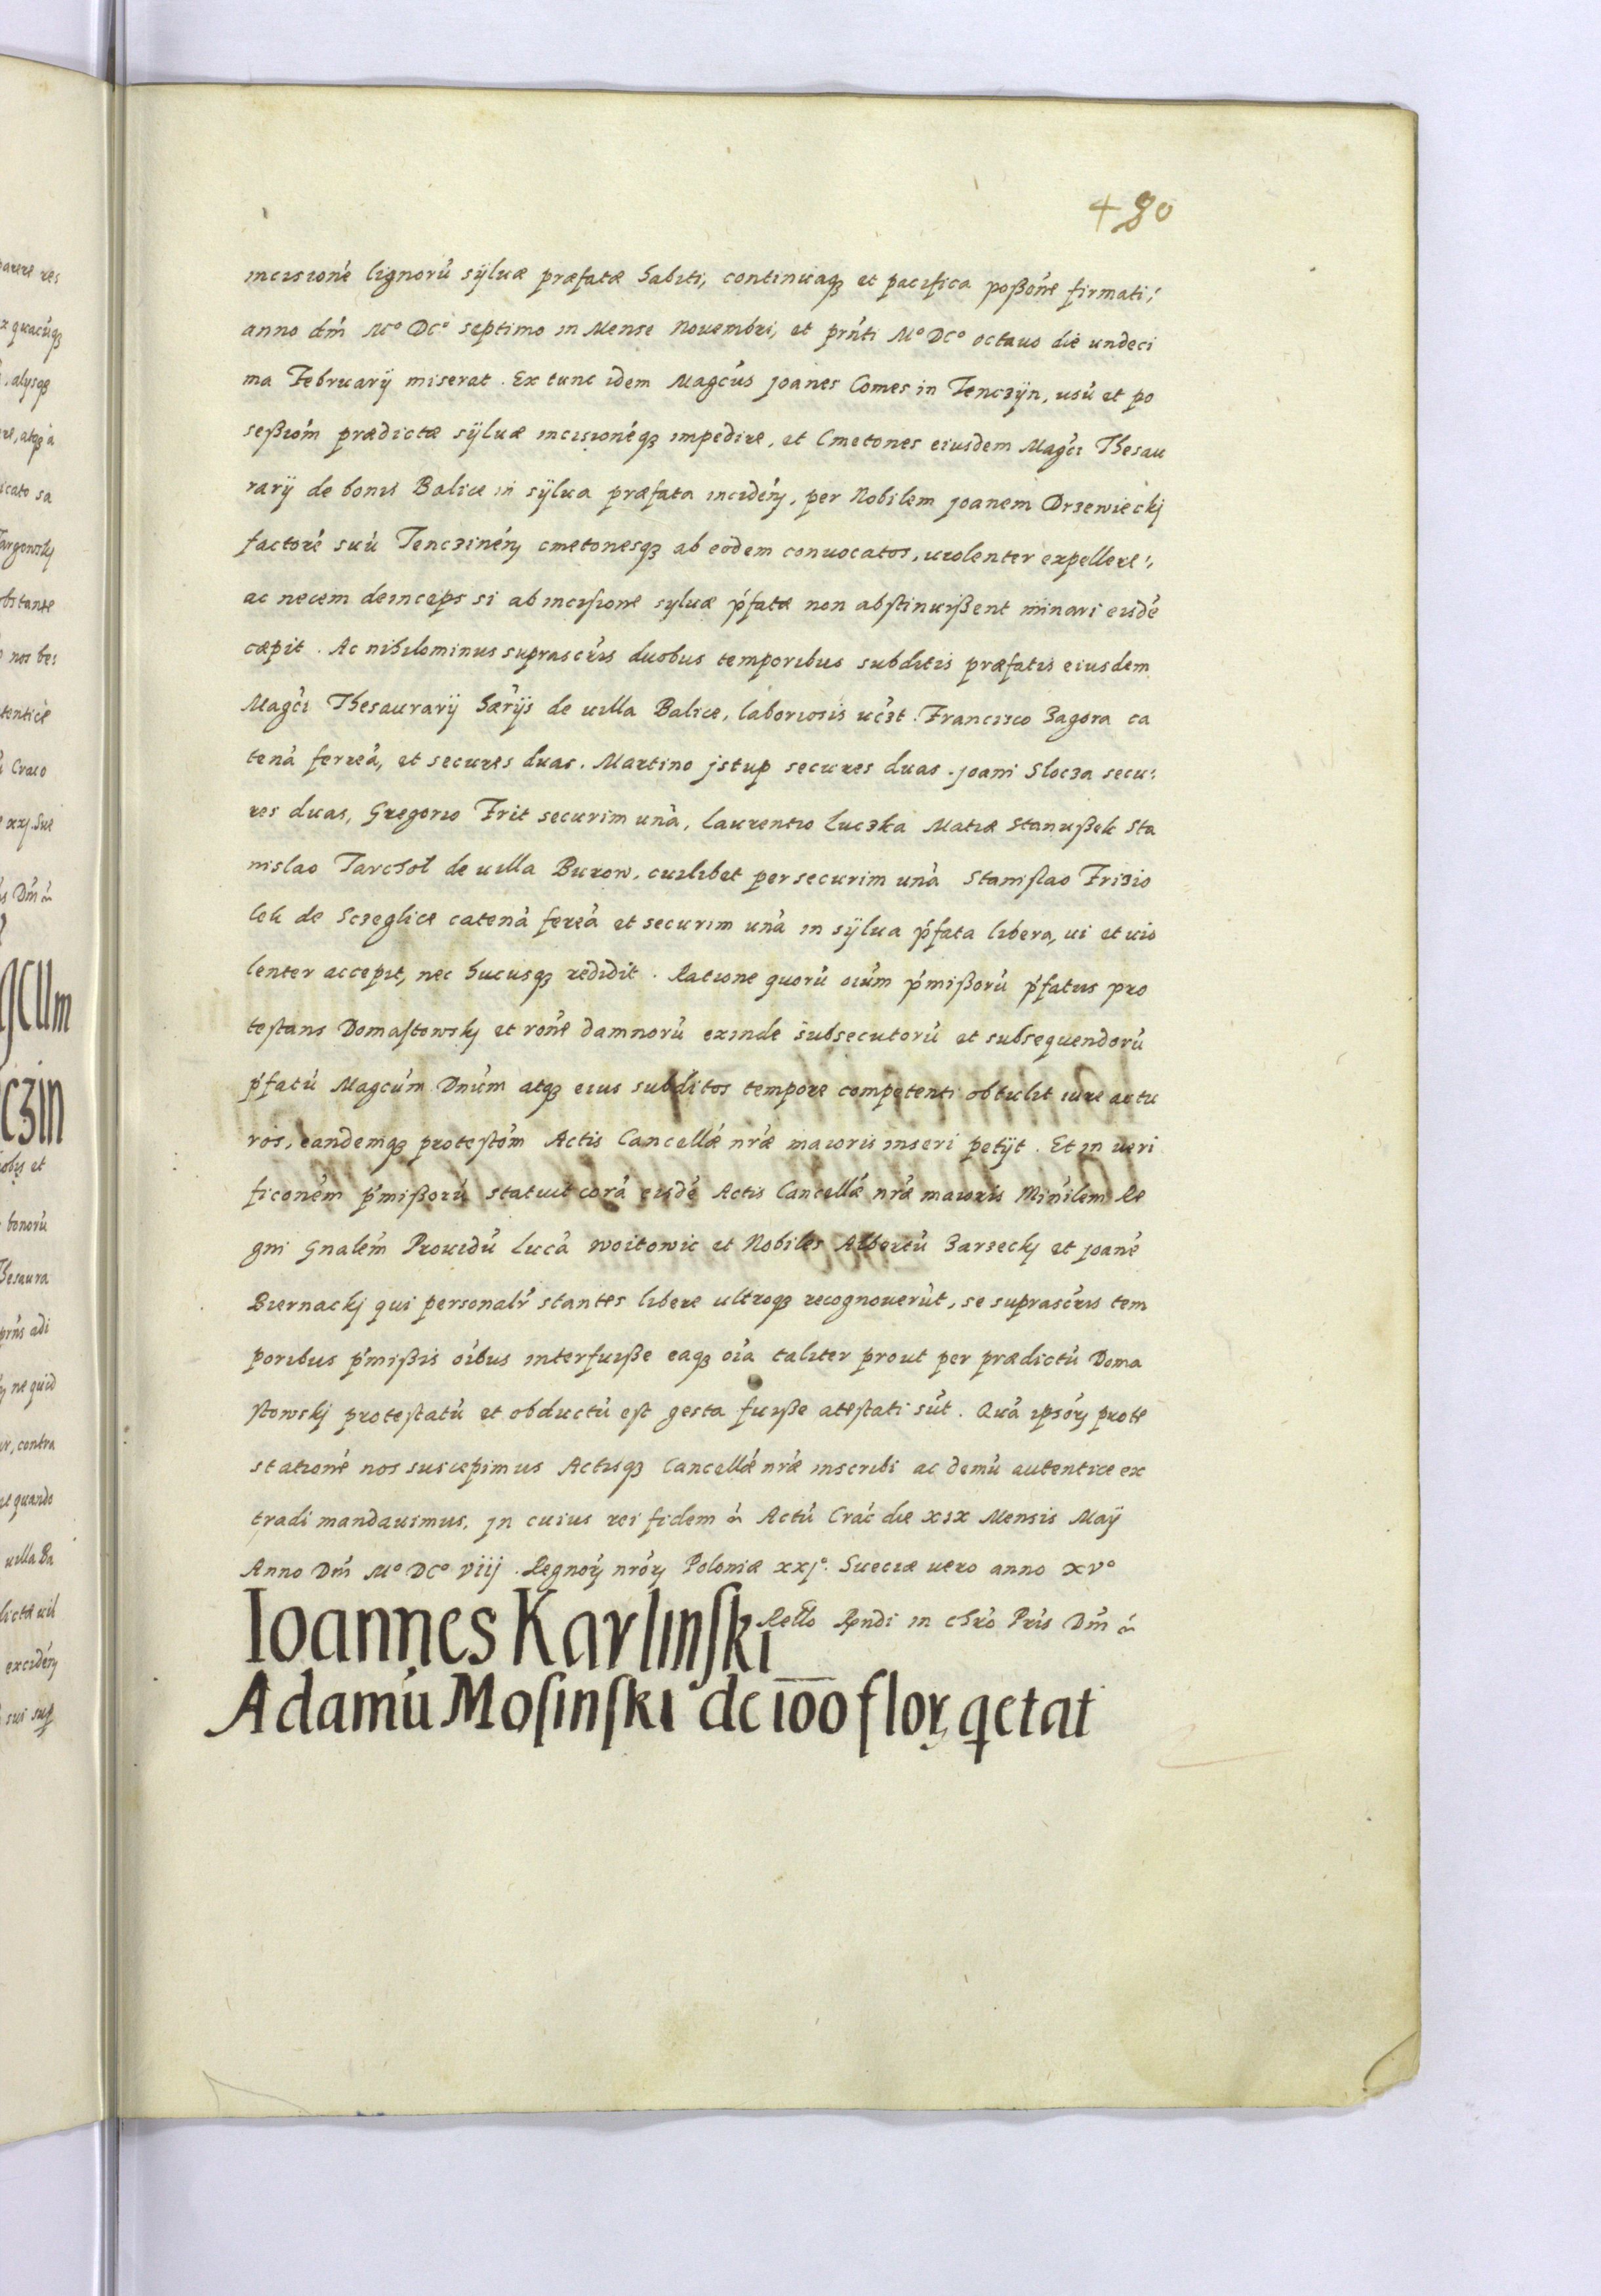 480
incisionē lignorū sylvæ præfatæ habiti, continuaqꝫ et pacifica poßoñe firmati,
anno dm̄ Mᵒ DCᵒ septimo in Mense Novembri, et prn̄ti Mᵒ DCᵒ octavo die undeci
ma Februarij miserat. Ex tunc idem Magcūs Joanes Comes in Tenczyn, usū et po
seßiom̄ prædictæ sÿlvæ incisionēqꝫ impedire, et Cmetones eiusdem Magc̄i Thesau
rarij de bonis Balice in sÿlva præfata inciden̄, per Nobilem Joanem Drzewieckj
factorē suū Tencziněn̄ cmetonesqꝫ ab eodem convocatos, violenter expellere,
ac necem deinceps si ab incisione sylvæ p̄fatæ non abstinuißent minari eisdē
cæpit. Ac nihilominus suprascr̄is duobus temporibus subditis præfatis eiusdem
Magc̄i Thesaurarij hær̄ijs de villa Balice, laboriosis vc̄zt. Francisco Zagora ca
tenā ferreā, et secures duas. Martino Jstup secures duas. Joani Slocza secu
res duas, Gregorio Frit securim unā, Laurentio Luczka Matiæ Stanußek Sta
nislao Tarchoł de villa Burow, cuilibet per securim unā Stanislao Frizio
lek de Sczeglice catenā fereā et securim unā in sÿlva p̄fata libera, vi et vio
lenter accepit, nec hucusqꝫ redidit. Ratione quorū oiūm p̄mißorū p̄fatus pro
testans Domastowskj et rone̅ damnorū exinde subsecutorū et subsequendorū
p̄fatū Magcūm Dnūm atqꝫ eius subditos tempore competenti obtulit iure actu
ros, eandemqꝫ protestom̄ Actis Cancellæ̅ nræ̅ maioris inseri petijt. Et in veri
ficonēm p̄mißorū statuit corā eisdē Actis Cancellæ̅ nræ̅ maioris Min̄ilem Re
gni Gnalēm Providū Lucā Woitowic et Nobiles Albertū Zarzeckj et Joanē
Biernackj qui personalr̄ stantes libere ultroqꝫ recognoverūt, se suprascr̄is tem
poribus p̄mißis oībus interfuiße eaqꝫ oīa taliter prout per prædictū Doma
stowskj protestatū et obductū est gesta fuiße atestati sūt. Quā ipsoꝝ prote
stationē nos suscepimus Actisqꝫ Cancellæ̅ nræ̅ inscribi ac demū autentice ex
tradi mandavimus. Jn cuius rei fidem &̄ Actū Crac̄ die xix Mensis Maÿ
Anno Dm̄ Mᵒ DCᵒ viij. Regnoꝝ nroꝝ Poloniæ xxjᵒ. Sueciæ vero anno xvᵒ
Rello Rn̄di in chro̅ Pris̅ Dm̄ &̄
Ioannes Karlinski
Adamū Mosinski de 100 floꝝ qetat